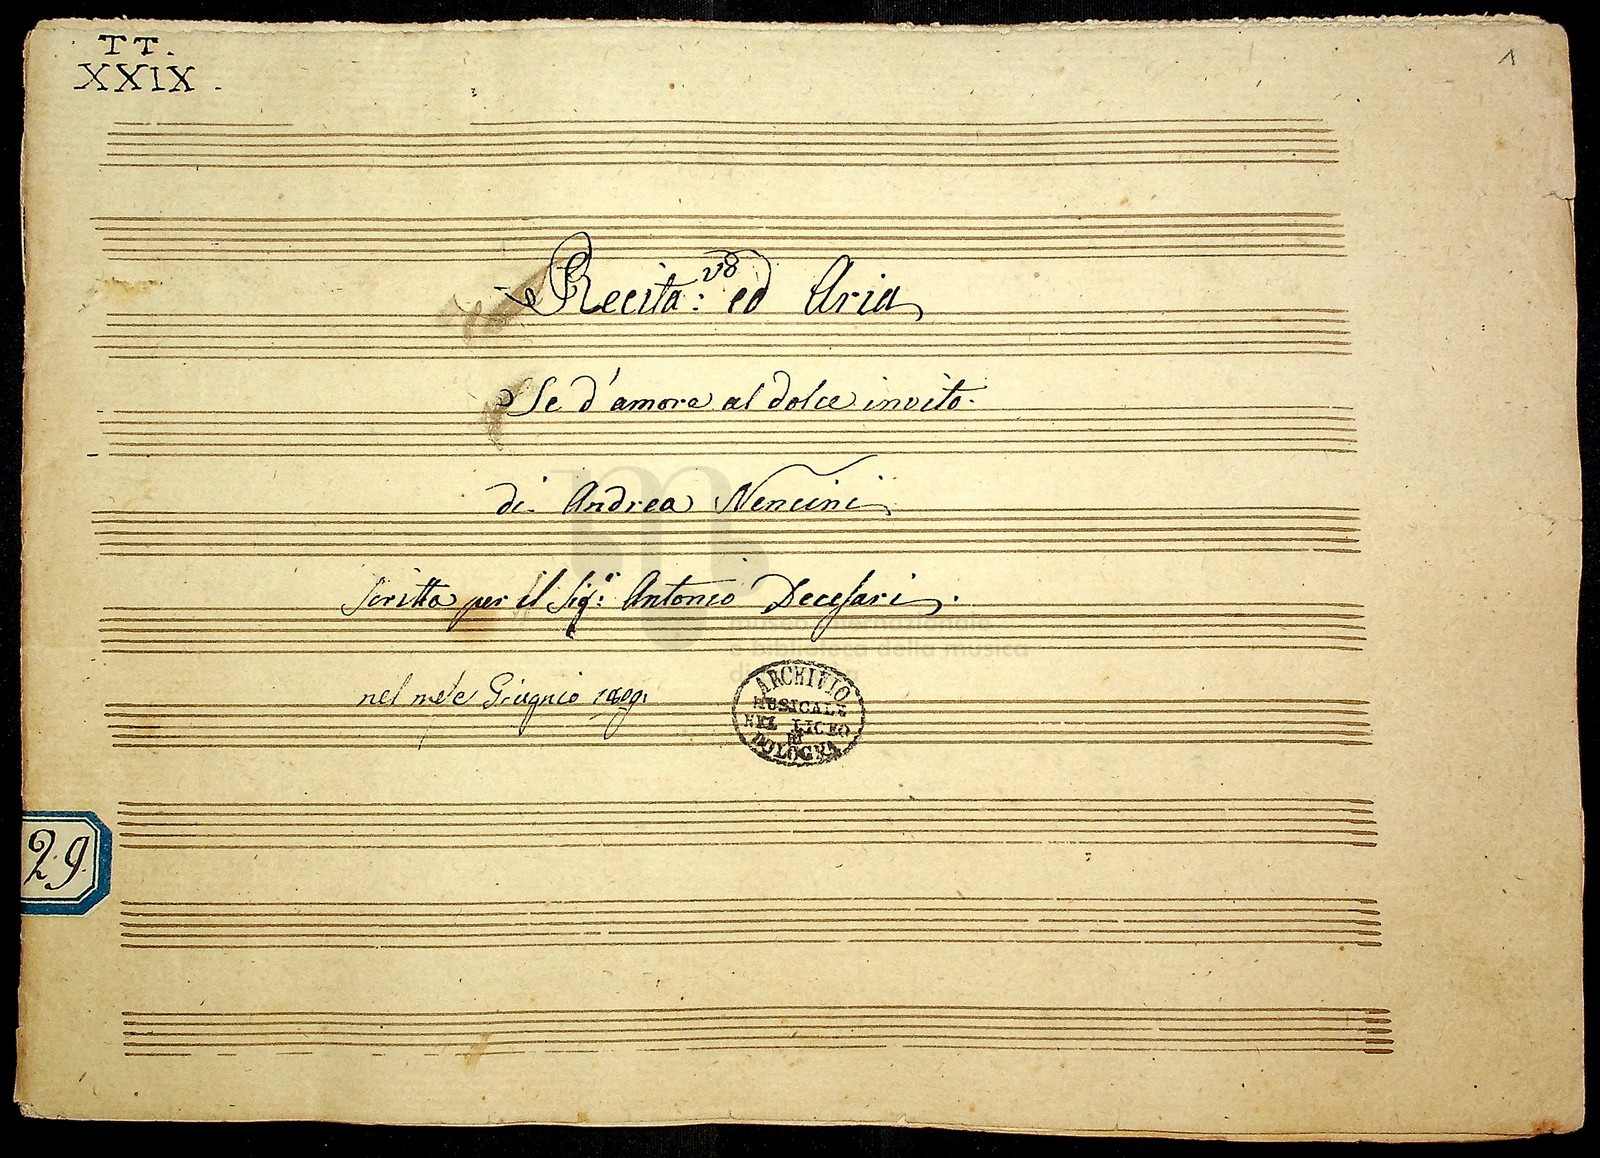 TT.
XXIX.
1
Recita:vo ed Aria
Se d'amore al dolce invito.
di Andrea Nencini
Scritta per il Sig:r Antonio Decesari.
nel mese Giugnio
ARCHIVIO
MUSICALE
NEL LICEO
DI
BOLOGNA
museo internazionale
e biblioteca della musica
di bologna
29.